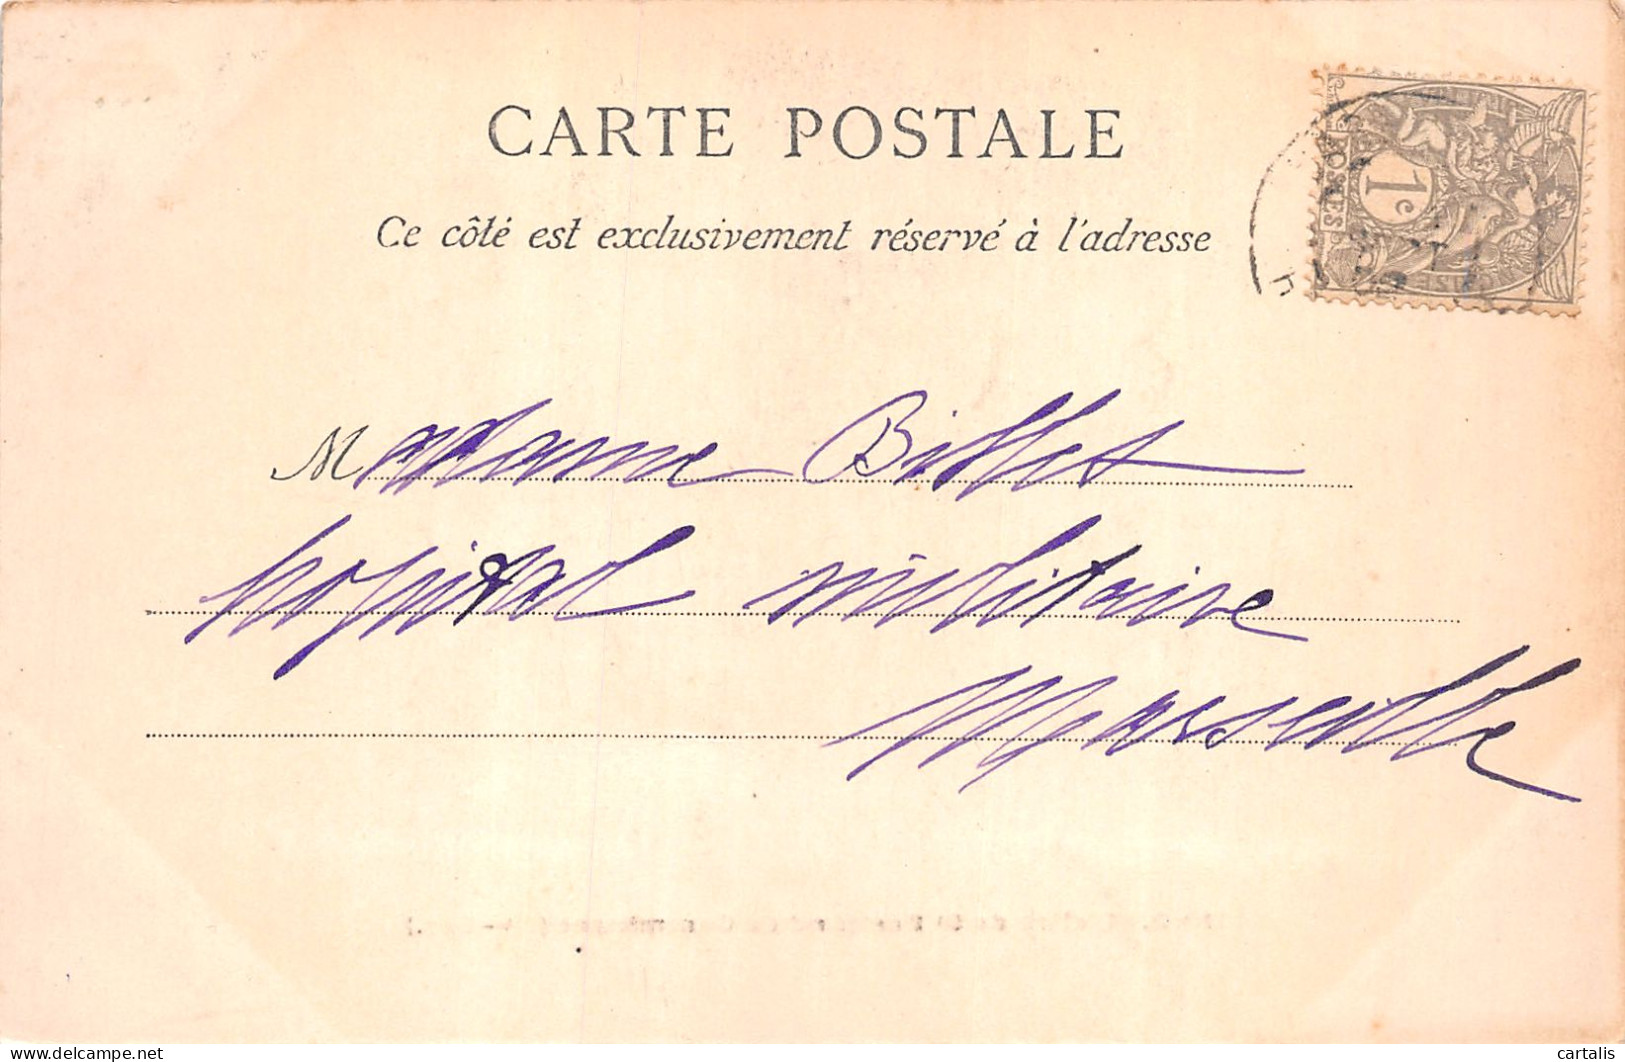 CARTE POSTALE
Ce côté est exclusivement réservé à l'adresse
POSTES
1c
Madame Billet
hopital militaire
Marseille
delcampe.net
cartalis